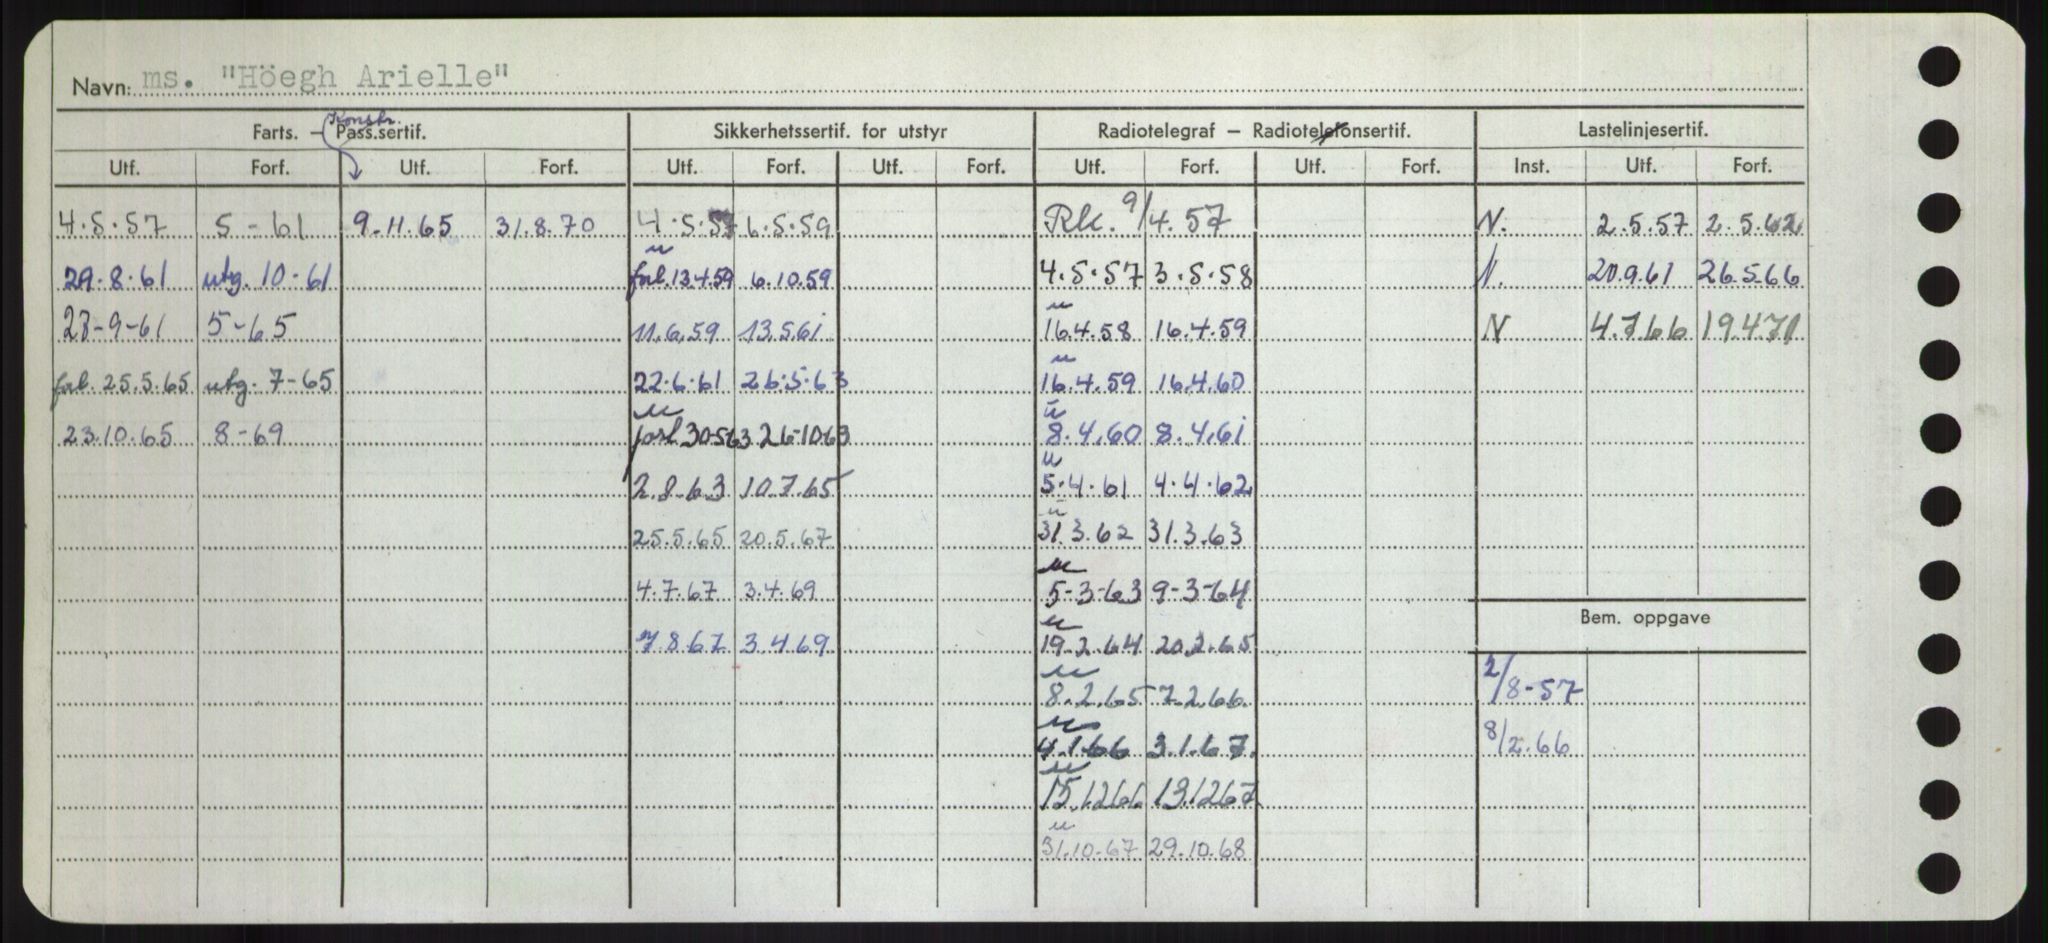 Navn: ms. "Höegh Arielle"
Konstr.
Farts. – Pass.sertif. Sikkerhetssertif. for utstyr Radiotelegraf – Radiotelefonsertif. Lastelinjesertif.
Utf. Forf. Utf. Forf. Utf. Forf. Utf. Forf. Utf. Forf. Utf. Forf. Inst. Utf. Forf.
4.5.57 5-61 9.11.65 31.8.70 4.5.57 6.5.59 Rk. 9/4.57 N. 2.5.57 2.5.62
29.8.61 utg. 10-61 forl. 13.4.59 6.10.59 4.5.57 3.5.58 N. 20.9.61 26.5.66
28-9-61 5-65 11.6.59 13.5.61 16.4.58 16.4.59 N 4.7.66 19.4.71
forl. 25.5.65 utg. 7-65 22.6.61 26.5.63 16.4.59 16.4.60
23.10.65 8-69 forl 30-5-63 26-10-63 8.4.60 8.4.61
2.8.63 10.7.65 5.4.61 4.4.62
25.5.65 20.5.67 31.3.62 31.3.63
4.7.67 3.4.69 5-3-63 9-3-64
Bem. oppgave
7.8.67 3.4.69 19.2.64 20.2.65
8.2.65 7.2.66 2/8-57
4.1.66 3.1.67. 8/2.66
15.12.66 13.12.67
31.10.67 29.10.68